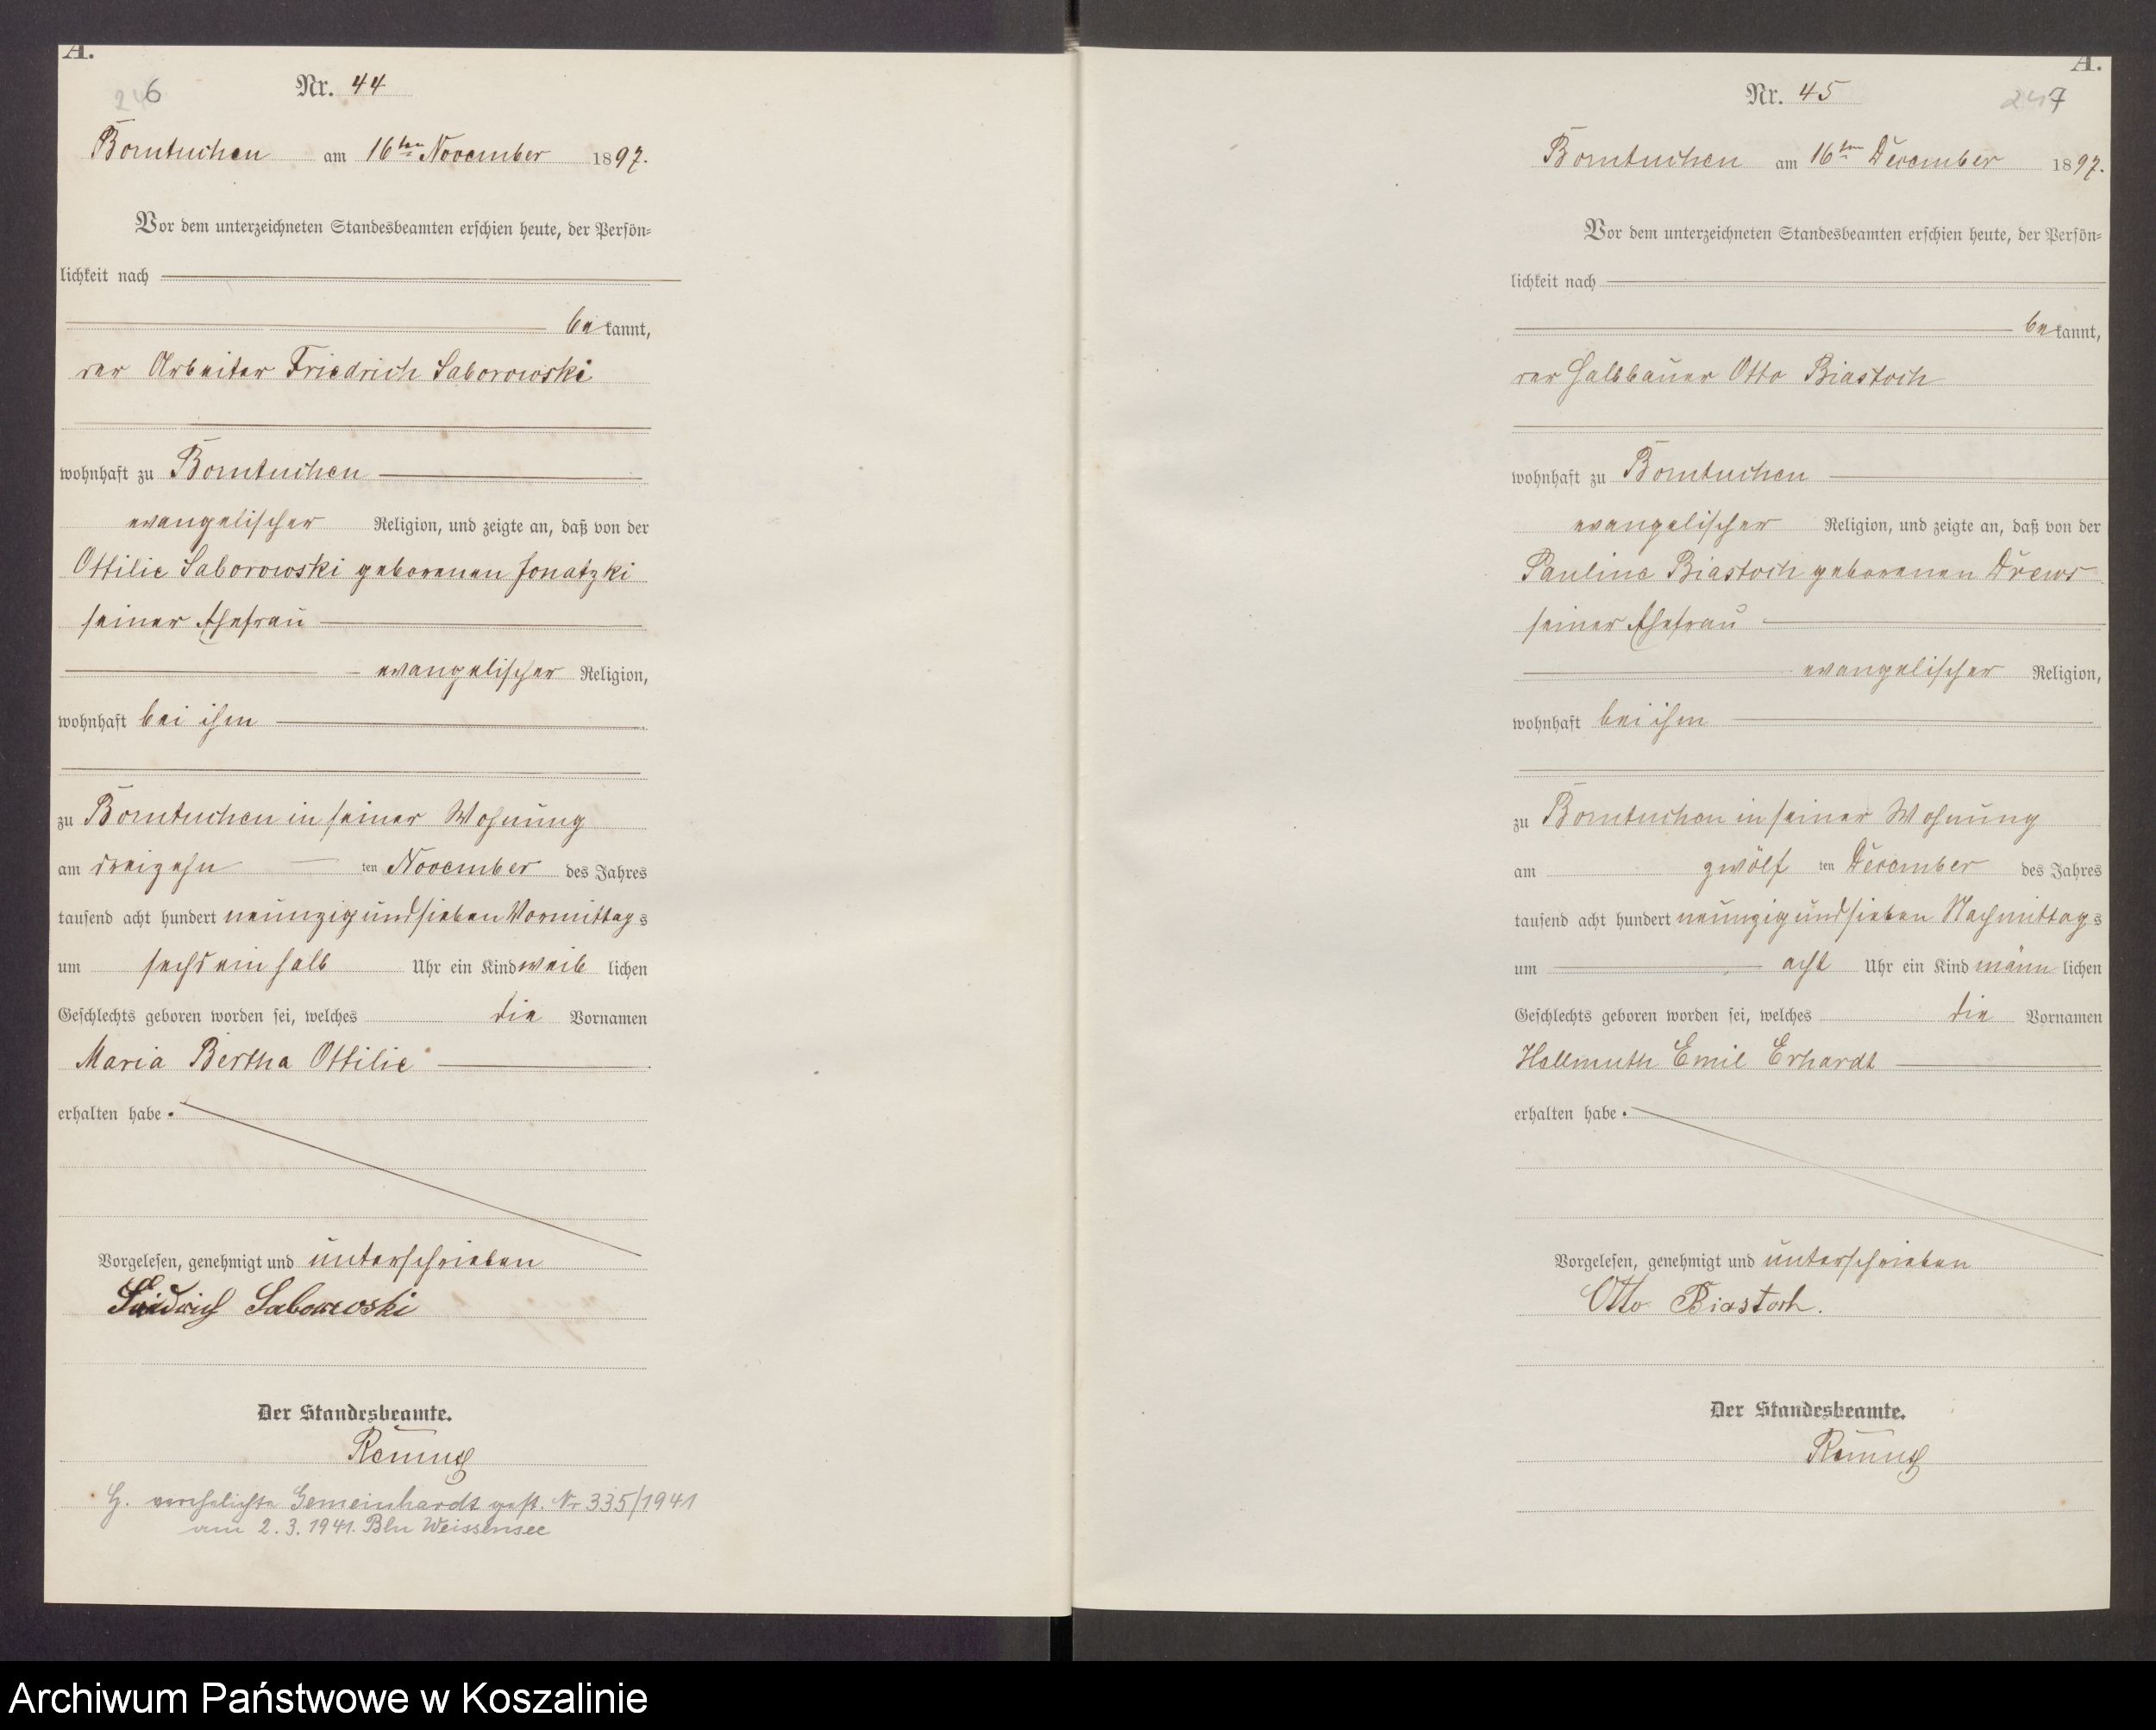 A.
246
Nr. 44
Borntuchen am 16ten November 1897.
Vor dem unterzeichneten Standesbeamten erschien heute, der Persön-
lichkeit nach
bekannt,
der Arbeiter Friedrich Saborowski
wohnhaft zu Borntuchen
evangelischer Religion, und zeigte an, daß von der
Ottilie Saborowski geborenen Jonatzki
seiner Ehefrau
evangelischer Religion,
wohnhaft bei ihm
zu Borntuchen in seiner Wohnung
am dreizehn ten November des Jahres
tausend acht hundert neunzig und sieben Vormittags
um sechs ein halb Uhr ein Kind weiblichen
Geschlechts geboren worden sei, welches die Vornamen
Maria Bertha Ottilie
erhalten habe.
Vorgelesen, genehmigt und unterschrieben
Friedrich Saborowski
Der Standesbeamte.
verehelichte Gemeinhardt gest. Nr 335/1941
am 2.3.1941. Bln Weissensee
A.
247
Nr. 45
Borntuchen am 16ten December 1897.
Vor dem unterzeichneten Standesbeamten erschien heute, der Persön-
lichkeit nach
bekannt,
der Halbbauer Otto Biastoch
wohnhaft zu Borntuchen
evangelischer Religion, und zeigte an, daß von der
Pauline Biastoch geborenen Drews
seiner Ehefrau
evangelischer Religion,
wohnhaft bei ihm
zu Borntuchen in seiner Wohnung
am zwölf ten December des Jahres
tausend acht hundert neunzig und sieben Nachmittags
um acht Uhr ein Kind männlichen
Geschlechts geboren worden sei, welches die Vornamen
Hellmuth Emil Erhardt
erhalten habe.
Vorgelesen, genehmigt und unterschrieben
Otto Biastoch.
Der Standesbeamte.
Archiwum Państwowe w Koszalinie